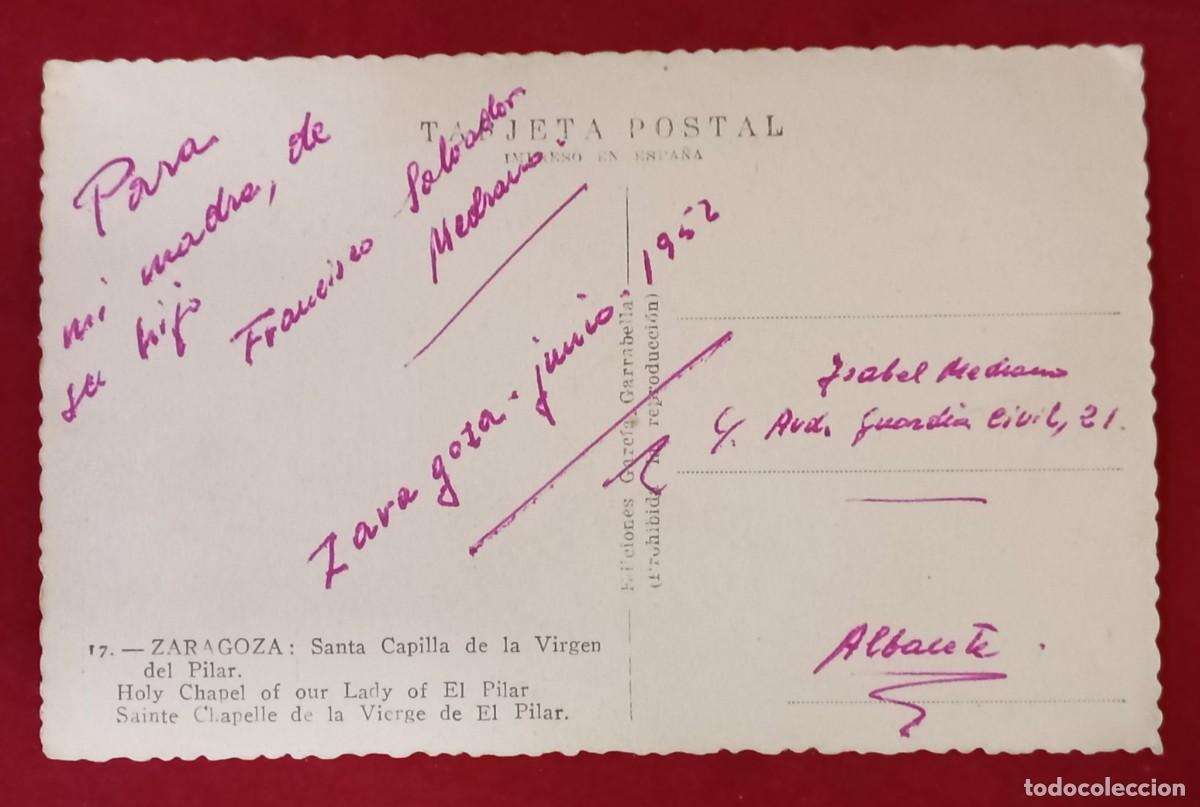 TARJETA POSTAL
IMPRESO EN ESPAÑA
Para
mi madre, de
su hijo
Francisco Salvador
Medrano.
Zaragoza. junio. 1952
Ediciones García Garrabella
(Prohibida la reproducción)
Isabel Medrano
C/. Avd. Guardia Civil, 21.
Albacete.
17. — ZARAGOZA: Santa Capilla de la Virgen
del Pilar.
Holy Chapel of our Lady of El Pilar
Sainte Chapelle de la Vierge de El Pilar.
todocoleccion